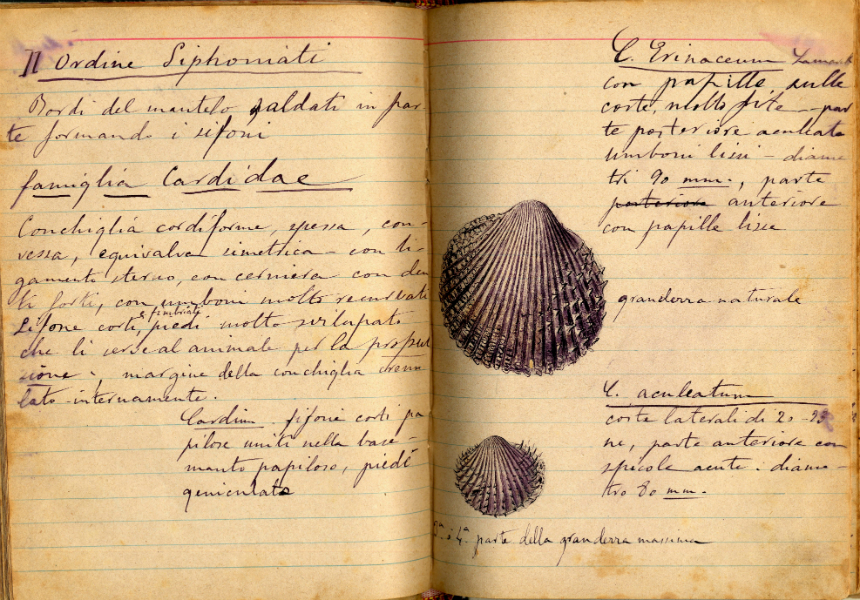 II Ordine Siphoniati
Bordi del mantelo saldati in par-
te formando i sifoni
famiglia Cardidae
Conchiglia cordiforme, spessa, con-
vessa, equivalva simetrica – con li-
gamento sterno, con cerniera con den
ti forti, con umboni molto recurvati
e fimbriati
Sifone corti, piedi molto sviluppato
che li serve al animale per la propul
sione ; margine della conchiglia crenu
lato internamente.
Cardium sifoni corti pa
pilosi uniti nella base –
manto papiloso, piede
geniculato
C. Erinaceum Lamark
con papille sulle
coste, molto fite – par
te posteriore aculeata
umboni lisci – diame
tri 90 mm., parte
posteriore anteriore
con papille lisce
granderra naturale
C. aculeatum
coste laterali di 21-23
ne, parte anteriore con
spicole acute . diame-
tro 80 mm.
3ª o 4ª parte della granderra massima